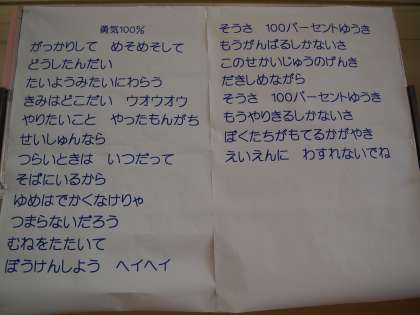 勇気100%
がっかりして めそめそして
どうしたんだい
たいようみたいにわらう
きみはどこだい ウオウオウ
やりたいこと やったもんがち
せいしゅんなら
つらいときは いつだって
そばにいるから
ゆめはでかくなけりゃ
つまらないだろう
むねをたたいて
ぼうけんしよう ヘイヘイ
そうさ 100パーセントゆうき
もうがんばるしかないさ
このせかいじゅうのげんき
だきしめながら
そうさ 100パーセントゆうき
もうやりきるしかないさ
ぼくたちがもてるかがやき
えいえんに わすれないでね